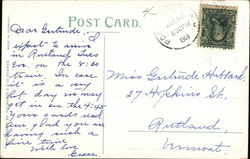 POST CARD.
Dear Gertrude: I
expect to arrive
in Rutland Tues
on the 8:20
train. In case
it is a very
hot day we may
get in on the 4:45
your cards and
am glad you are
having such a
fine time.
with love
Miss Gertrude Hubbard,
27 Hopkins St,
Rutland,
Vermont.